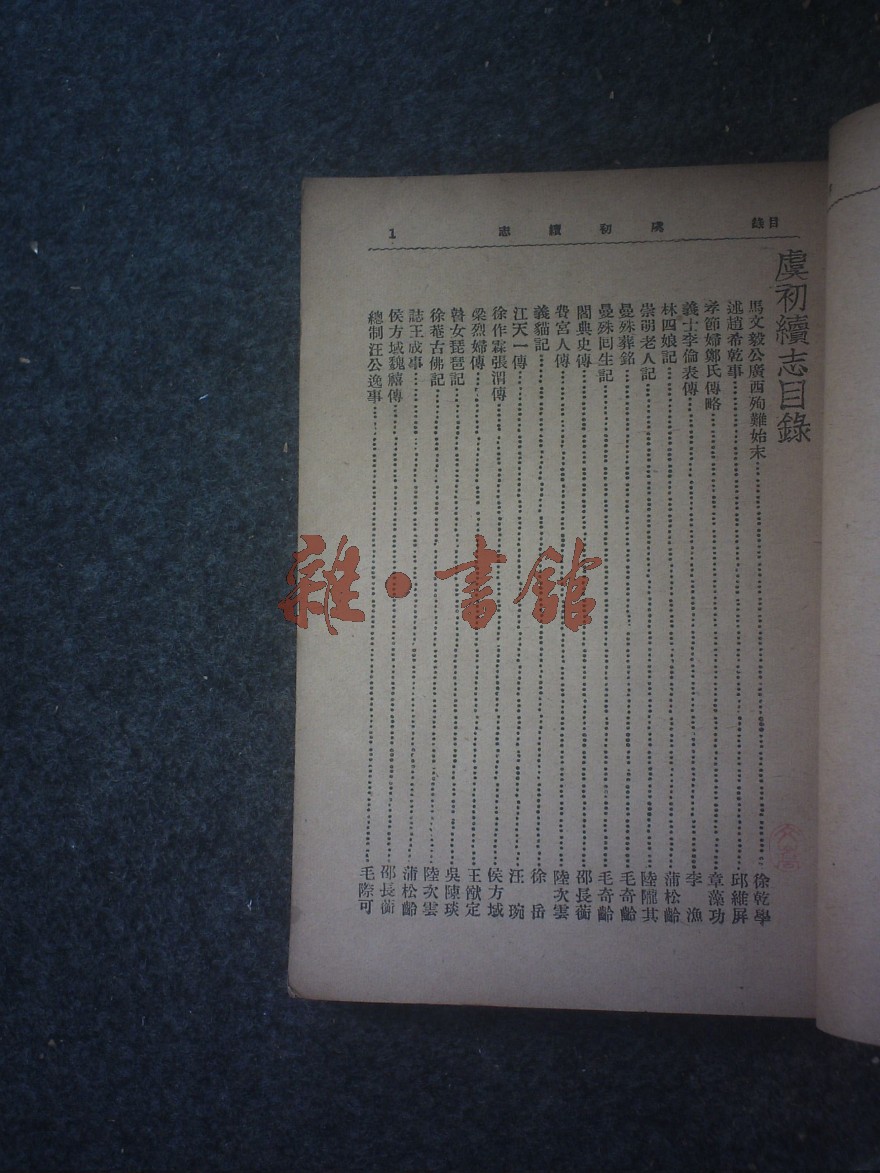 目錄 虞初續志 1
虞初續志目錄
馬文毅公廣西殉難始末 徐乾學
述趙希乾事 邱維屏
孝節婦鄭氏傳略 章藻功
義士李倫表傳 李漁
林四娘記 蒲松齡
崇明老人記 陸隴其
曼殊葬銘 毛奇齡
曼殊囘生記 毛奇齡
閻典史傳 邵長蘅
費宮人傳 陸次雲
義貓記 徐岳
江天一傳 汪琬
徐作霖張渭傳 侯方域
梁烈婦傳 王猷定
瞽女琵琶記 吳陳琰
徐菴古佛記 陸次雲
誌王成事 蒲松齡
侯方域魏禧傳 邵長蘅
總制汪公逸事 毛際可
雜·書館